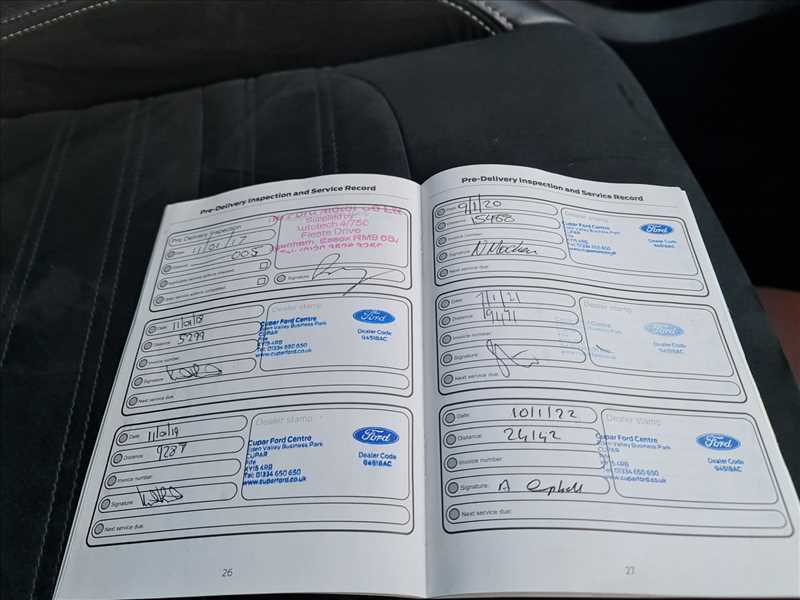 Pre-Delivery Inspection and Service Record
Pre Delivery Inspection
Supplied by:
4/750
Fieste Drive
Essex RM9 6BJ
11/01/17
005
Signature:
Date: 11/01/18
Distance: 5299
Invoice number:
Signature:
Next service due:
Dealer stamp
Cupar Ford Centre
Eden Valley Business Park
CUPAR
Fife
KY15 4RB
Tel: 01334 650 650
www.cuparford.co.uk
Ford
Dealer Code
94618AC
Date: 11/01/19
Distance: 9287
Invoice number:
Signature:
Next service due:
Dealer stamp
Cupar Ford Centre
Eden Valley Business Park
CUPAR
Fife
KY15 4RB
Tel: 01334 650 650
www.cuparford.co.uk
Ford
Dealer Code
94618AC
26
Pre-Delivery Inspection and Service Record
9/1/20
15468
Next service due:
Dealer stamp
Ford
Dealer Code
94618AC
Date: 7/1/21
Distance: 19471
Invoice number:
Signature:
Next service due:
Dealer stamp
Ford
Dealer Code
94618AC
Date: 10/1/22
Distance: 24142
Invoice number:
Signature: A
Next service due:
Dealer stamp
Cupar Ford Centre
Eden Valley Business Park
CUPAR
Fife
KY15 4RB
Tel: 01334 650 650
www.cuparford.co.uk
Ford
Dealer Code
94618AC
27